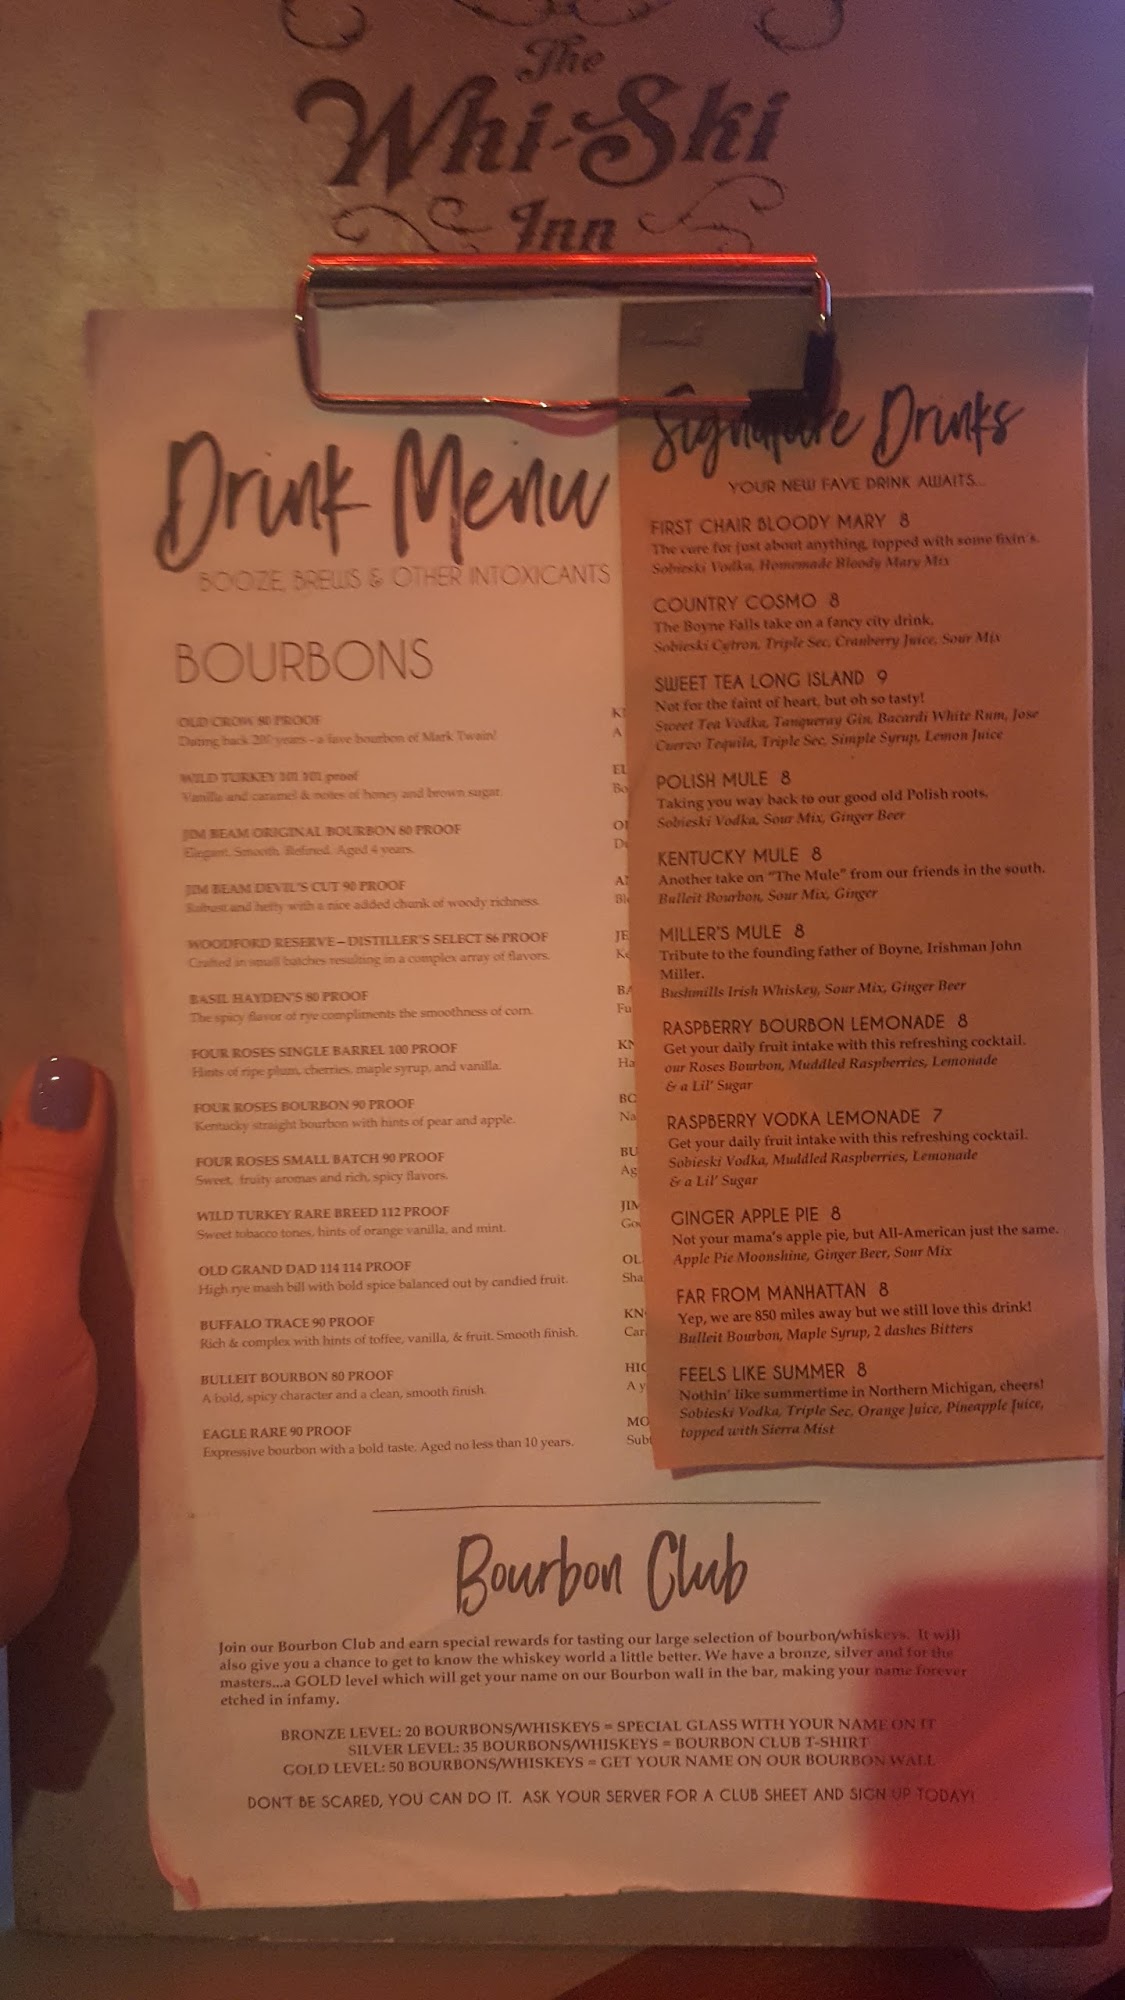 The
Whi-Ski
Inn
Drink Menu
BOOZE, BREWS & OTHER INTOXICANTS
BOURBONS
OLD CROW 80 PROOF
Dating back 200 years - a fave bourbon of Mark Twain!
WILD TURKEY 101 101 proof
Vanilla and caramel & notes of honey and brown sugar.
JIM BEAM ORIGINAL BOURBON 80 PROOF
Elegant. Smooth. Refined. Aged 4 years.
JIM BEAM DEVIL'S CUT 90 PROOF
Robust and hefty with a nice added chunk of woody richness.
WOODFORD RESERVE – DISTILLER'S SELECT 86 PROOF
Crafted in small batches resulting in a complex array of flavors.
BASIL HAYDEN'S 80 PROOF
The spicy flavor of rye compliments the smoothness of corn.
FOUR ROSES SINGLE BARREL 100 PROOF
Hints of ripe plum, cherries, maple syrup, and vanilla.
FOUR ROSES BOURBON 90 PROOF
Kentucky straight bourbon with hints of pear and apple.
FOUR ROSES SMALL BATCH 90 PROOF
Sweet, fruity aromas and rich, spicy flavors.
WILD TURKEY RARE BREED 112 PROOF
Sweet tobacco tones, hints of orange vanilla, and mint.
OLD GRAND DAD 114 114 PROOF
High rye mash bill with bold spice balanced out by candied fruit.
BUFFALO TRACE 90 PROOF
Rich & complex with hints of toffee, vanilla, & fruit. Smooth finish.
BULLEIT BOURBON 80 PROOF
A bold, spicy character and a clean, smooth finish.
EAGLE RARE 90 PROOF
Expressive bourbon with a bold taste. Aged no less than 10 years.
Signature Drinks
YOUR NEW FAVE DRINK AWAITS...
FIRST CHAIR BLOODY MARY 8
The cure for just about anything, topped with some fixin's.
Sobieski Vodka, Homemade Bloody Mary Mix
COUNTRY COSMO 8
The Boyne Falls take on a fancy city drink.
Sobieski Cytron, Triple Sec, Cranberry Juice, Sour Mix
SWEET TEA LONG ISLAND 9
Not for the faint of heart, but oh so tasty!
Sweet Tea Vodka, Tanqueray Gin, Bacardi White Rum, Jose
Cuervo Tequila, Triple Sec, Simple Syrup, Lemon Juice
POLISH MULE 8
Taking you way back to our good old Polish roots.
Sobieski Vodka, Sour Mix, Ginger Beer
KENTUCKY MULE 8
Another take on "The Mule" from our friends in the south.
Bulleit Bourbon, Sour Mix, Ginger
MILLER'S MULE 8
Tribute to the founding father of Boyne, Irishman John
Miller.
Bushmills Irish Whiskey, Sour Mix, Ginger Beer
RASPBERRY BOURBON LEMONADE 8
Get your daily fruit intake with this refreshing cocktail.
our Roses Bourbon, Muddled Raspberries, Lemonade
& a Lil' Sugar
RASPBERRY VODKA LEMONADE 7
Get your daily fruit intake with this refreshing cocktail.
Sobieski Vodka, Muddled Raspberries, Lemonade
& a Lil' Sugar
GINGER APPLE PIE 8
Not your mama's apple pie, but All-American just the same.
Apple Pie Moonshine, Ginger Beer, Sour Mix
FAR FROM MANHATTAN 8
Yep, we are 850 miles away but we still love this drink!
Bulleit Bourbon, Maple Syrup, 2 dashes Bitters
FEELS LIKE SUMMER 8
Nothin' like summertime in Northern Michigan, cheers!
Sobieski Vodka, Triple Sec, Orange Juice, Pineapple Juice,
topped with Sierra Mist
Bourbon Club
Join our Bourbon Club and earn special rewards for tasting our large selection of bourbon/whiskeys. It will
also give you a chance to get to know the whiskey world a little better. We have a bronze, silver and for the
masters...a GOLD level which will get your name on our Bourbon wall in the bar, making your name forever
etched in infamy.
BRONZE LEVEL: 20 BOURBONS/WHISKEYS = SPECIAL GLASS WITH YOUR NAME ON IT
SILVER LEVEL: 35 BOURBONS/WHISKEYS = BOURBON CLUB T-SHIRT
GOLD LEVEL: 50 BOURBONS/WHISKEYS = GET YOUR NAME ON OUR BOURBON WALL
DON'T BE SCARED, YOU CAN DO IT. ASK YOUR SERVER FOR A CLUB SHEET AND SIGN UP TODAY!